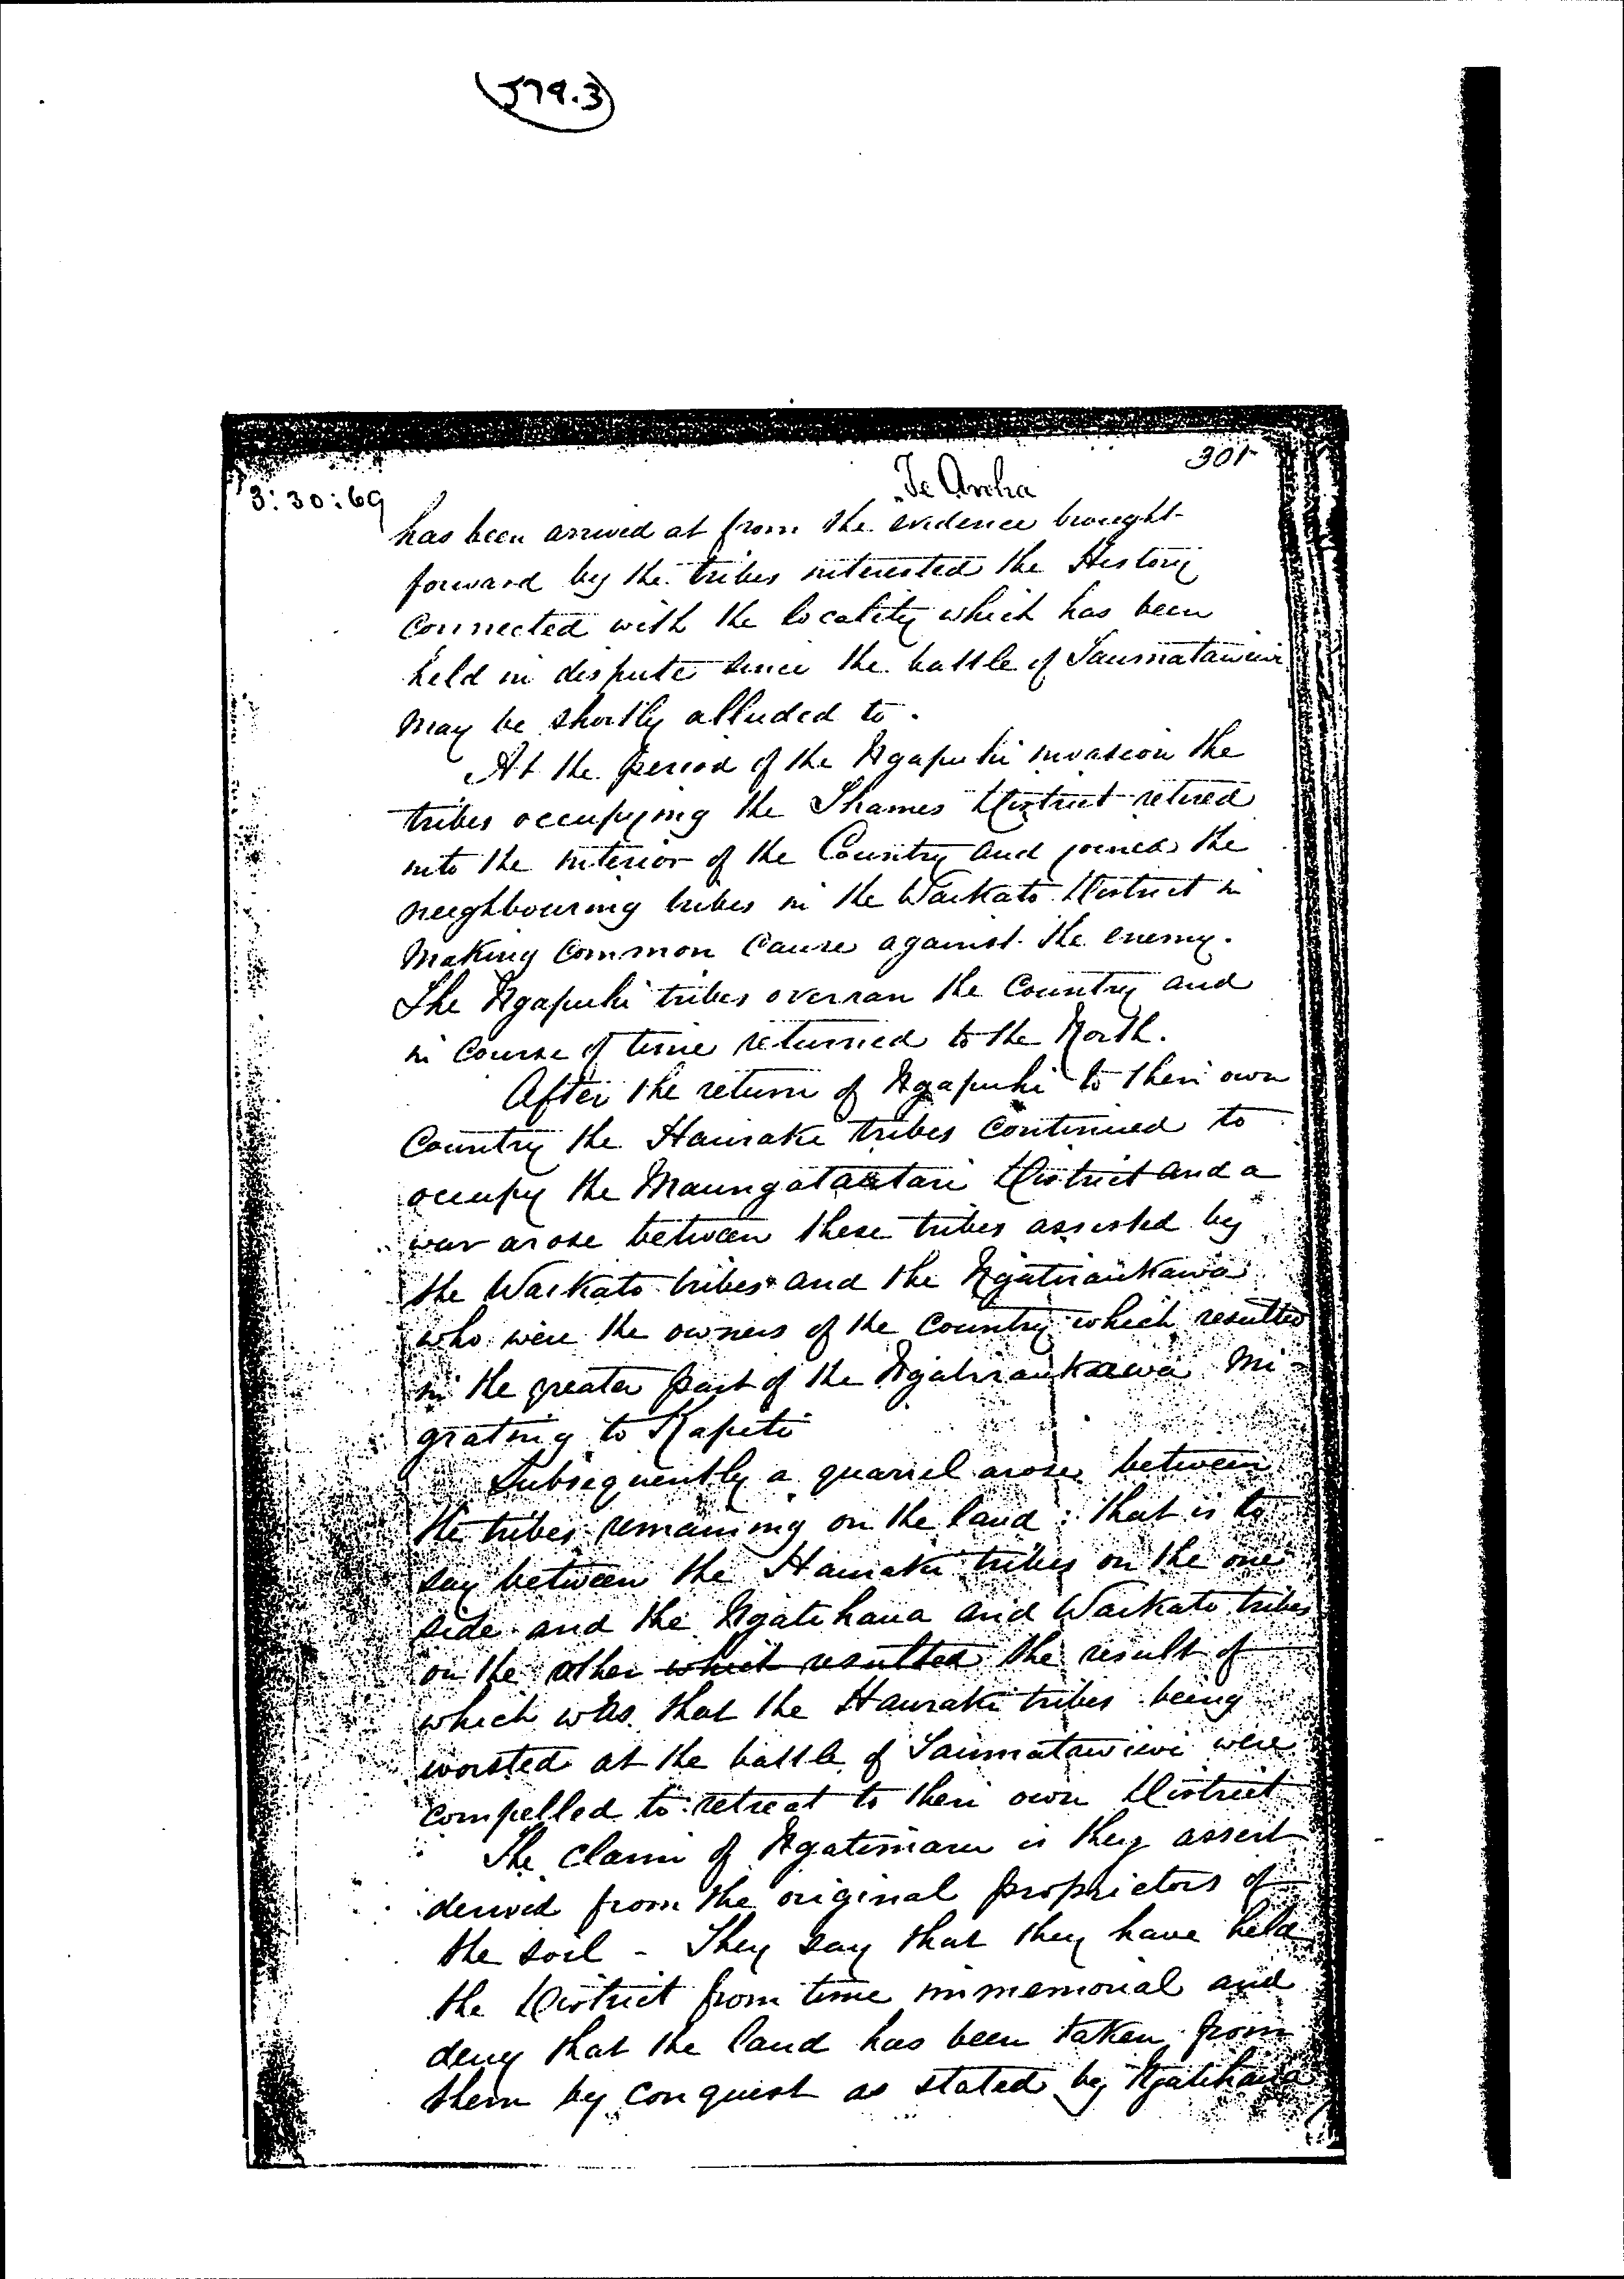 379.3
301
Te Aroha
3:30:69
has been arrived at from the evidence brought
forward by the tribes interested the History
connected with the locality which has been
held in dispute since the battle of Taumatawiwi
may be shortly alluded to.
At the period of the Ngapuhi invasion the
tribes occupying the Thames District retired
into the interior of the Country and joined the
neighbouring tribes in the Waikato District in
making common cause against the enemy.
The Ngapuhi tribes overran the Country and
in course of time returned to the North.
After the return of Ngapuhi to their own
Country the Hauraki tribes continued to
occupy the Maungatautari District and a
war arose between these tribes assisted by
the Waikato tribes and the Ngatiraukawa
who were the owners of the country which resulted
in the greater part of the Ngatiraukawa mi-
grating to Kapiti
Subsequently a quarrel arose between
the tribes remaining on the land: that is to
say between the Hauraki tribes on the one
side and the Ngatihaua and Waikato tribes
on the other which resulted the result of
which was that the Hauraki tribes being
worsted at the battle of Taumatawiwi were
compelled to retreat to their own District
The claim of Ngatimaru is they assert
derived from the original proprietors of
the soil - They say that they have held
the District from time immemorial and
deny that the land has been taken from
them by conquest as stated by Ngatihaua